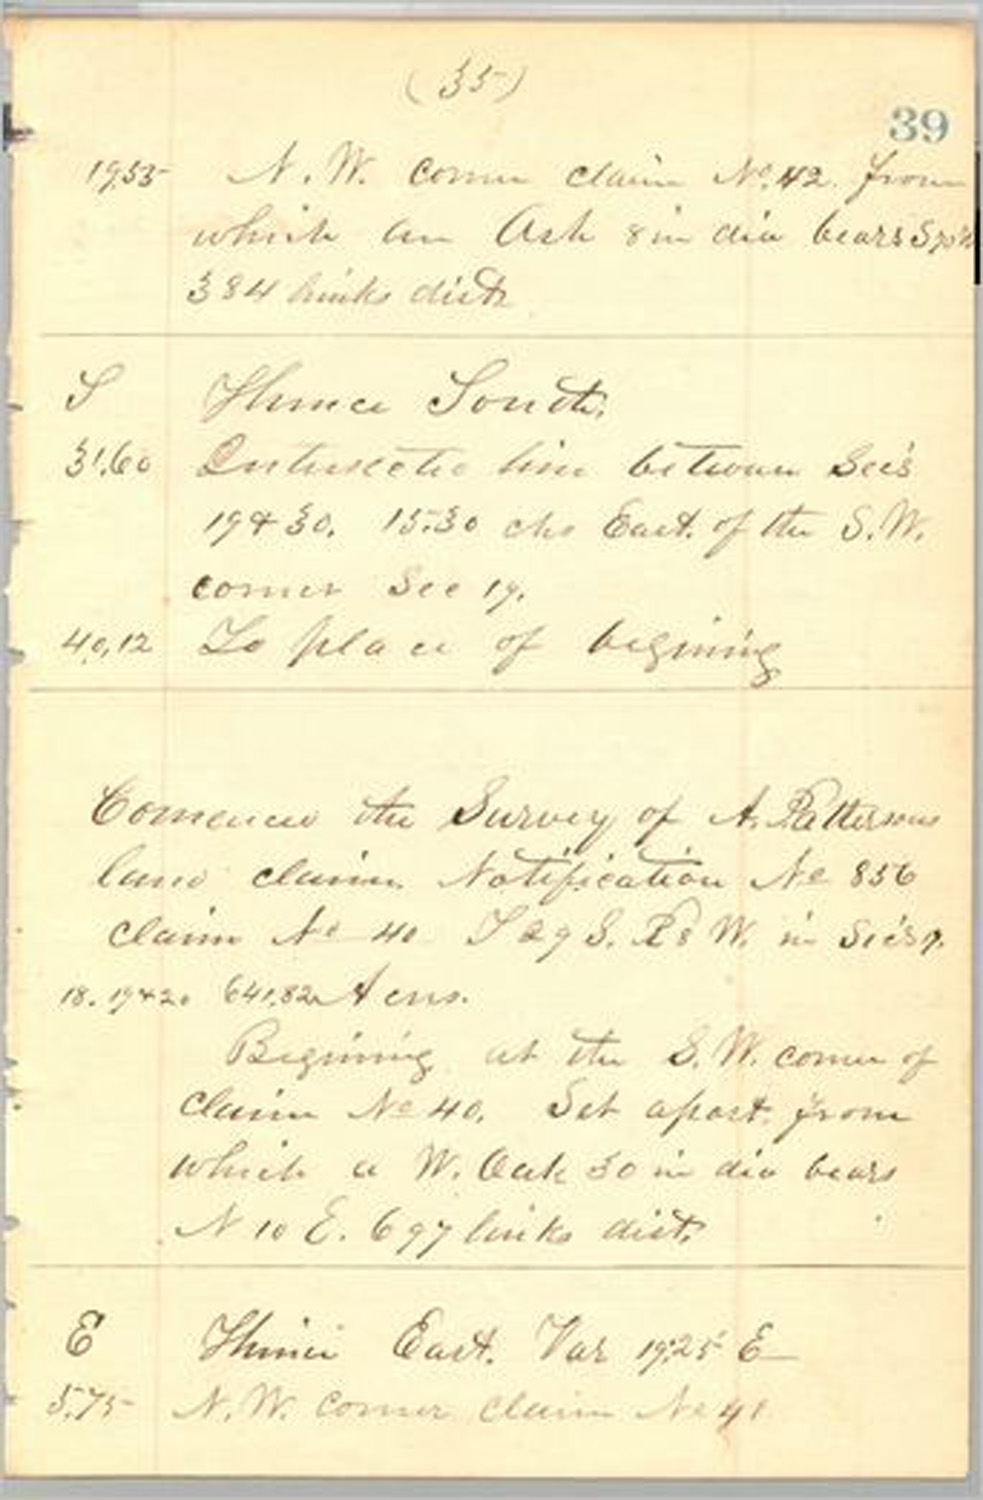 (35)
39
19,55 N. W. corner claim No. 42. from
which an Ash 8 in dia bears S 70 W
384 links dist.
S Thence South.
31.60 Intersected line between Sec's
19 & 30. 15.30 chs East. of the S. W.
corner Sec 19.
40,12 To place of begining
Comence the Survey of A. Pattersons
land claim Notification No 856
claim No 40 T 29 S. R 8 W. in Sec's 7.
18. 19 & 20 641,82 Acres.
Begining at the S. W. corner of
claim No 40. Set a post. from
which a W. Oak 30 in dia bears
N 10 E. 697 links dist.
E Thence East. Var 19.25 E
5.75 N. W. corner claim No 41